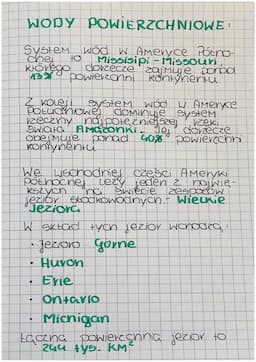 WODY POWIERZCHNIOWE:
System wód w Ameryce Półno-
cnej to Missisipi-Missouri,
którego dorzecze zajmuje ponad
13% powierzchni kontynentu
Z kolei system wód w Ameryce
Południowej dominuje system
rzeczny najpotężniejszej rzeki
świata Amazonki. Jej dorzecze
obejmuje ponad 40% powierzchni
kontynentu
We wschodniej części Ameryki
Północnej leży jeden z najwię-
kszych na świecie zespołów
jezior słodkowodnych - Wielkie
Jeziora
W skład tych jezior wchodzą:
· Jezioro Górne
· Huron
· Erie
· Ontario
· Michigan
Łączna powierzchnia jezior to
244 tyś. km²